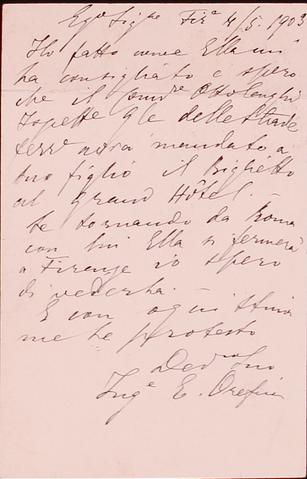 Egº Sigre Fire 4/5. 1903
Ho fatto come Ella mi
ha consigliato e spero
che il Comre Ottolenghi
Ispette Gle delle Strade
ferre avrà mandato a
suo figlio il Biglietto
al Grand Hôtel. –
Se tornando da Roma
con lui Ella si fermerà
a Firenze io spero
di vederla. –
E con ogni stima
me le protesto
Devmo Suo
Inge E. Orefici